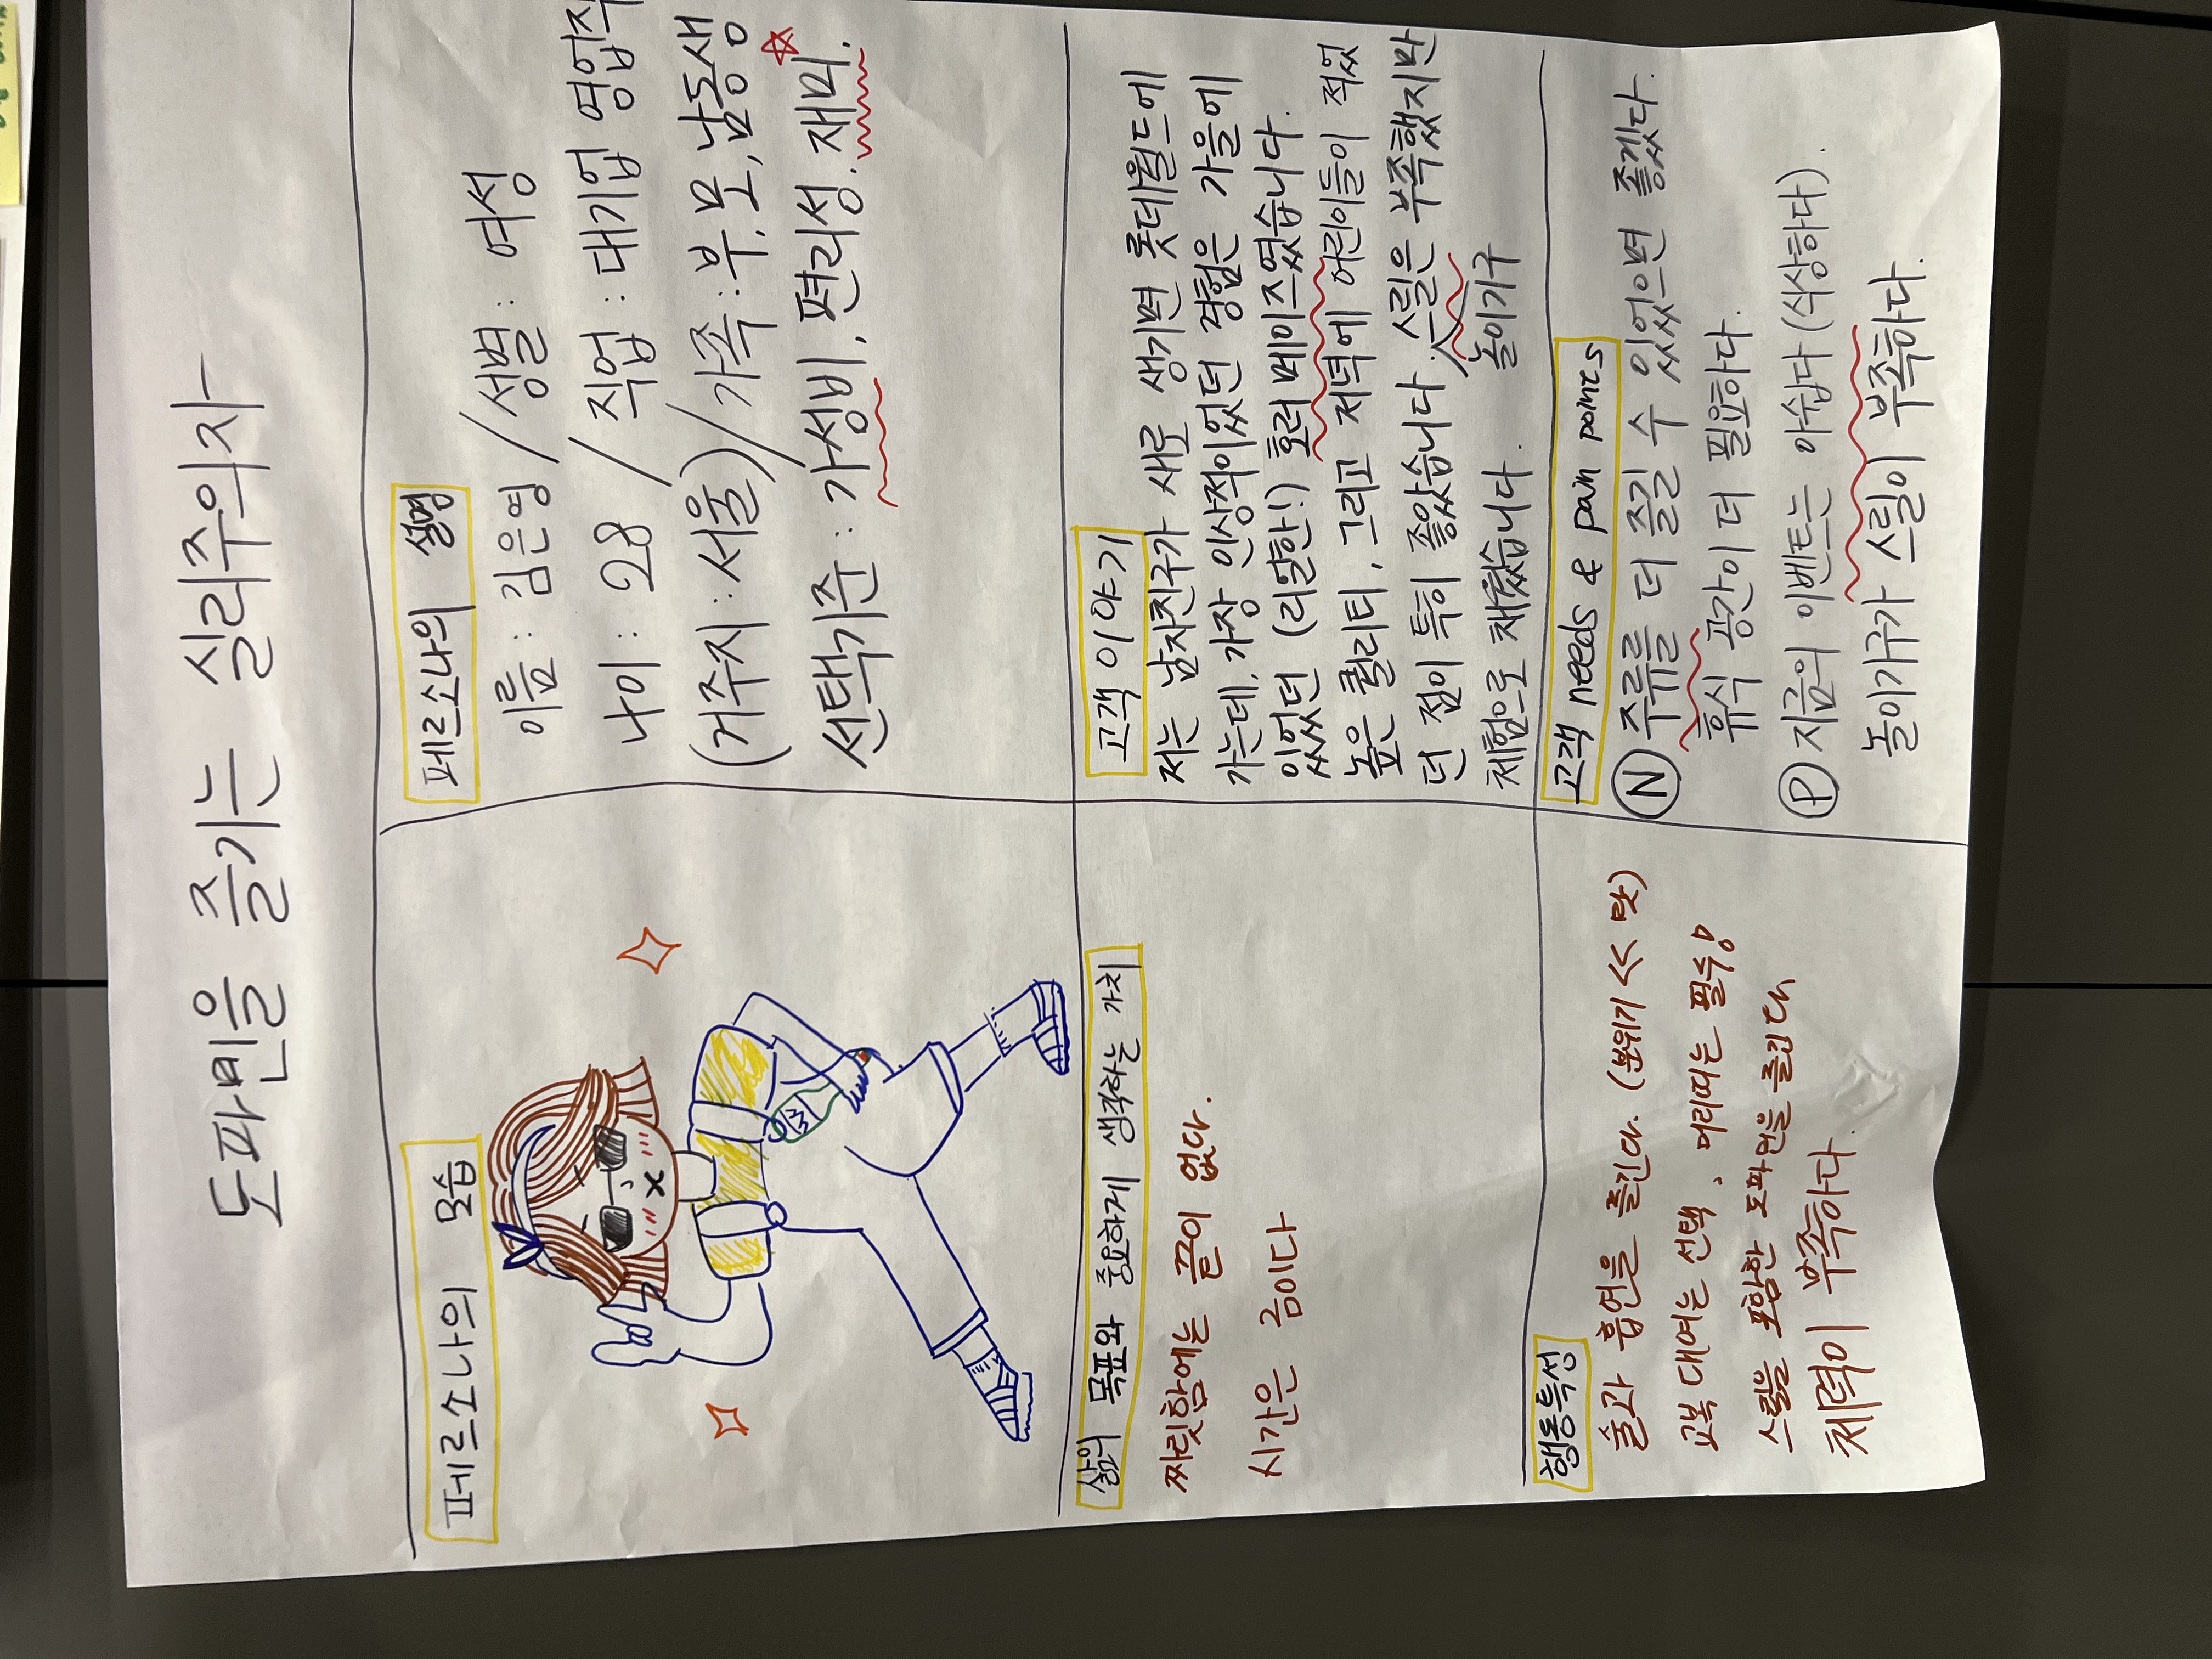 도파민을 즐기는 실리주의자
페르소나의 모습
페르소나의 설명
이름 : 김은영 / 성별 : 여성
나이 : 28 / 직업 : 대기업 영업직
(거주지 : 서울) / 가족 : 부, 모, 남동생
선택기준 : 가성비, 편리성, 재미.
삶의 목표와 중요하게 생각하는 가치
짜릿함에는 끝이 없다.
시간은 금이다
고객 이야기
저는 남자친구가 새로 생기면 롯데월드에
가는데, 가장 인상적이었던 경험은 가을에
있었던 (리얼한!) 호러 메이즈였습니다.
높은 퀄리티, 그리고 저녁에 어린이들이 적었
던 점이 특히 좋았습니다. 스릴은 부족했지만
놀이기구
체험으로 채웠습니다.
행동특성
술과 흡연을 즐긴다. (분위기 << 맛)
교복 대여는 선택, 머리띠는 필수!
스릴을 포함한 도파민을 즐긴다
체력이 부족하다.
고객 needs & pain points
N 주류를 더 즐길 수 있었으면 좋겠다.
휴식 공간이 더 필요하다.
P 지금의 이벤트는 아쉽다 (식상하다).
놀이기구가 스릴이 부족하다.